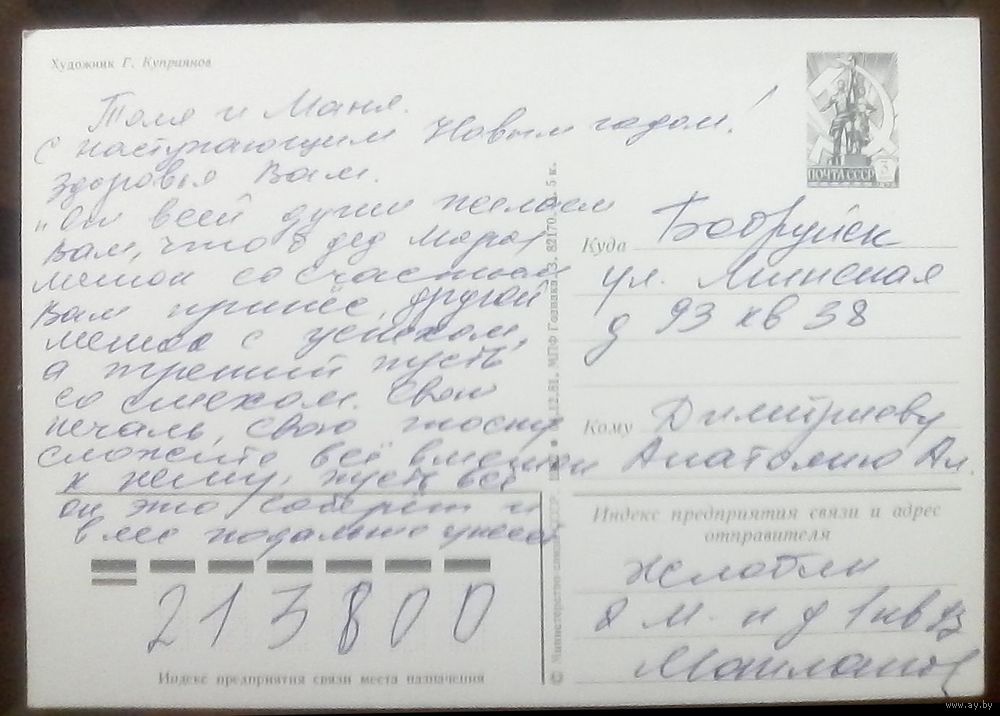 Художник Г. Куприянов
Толя и Маня.
С наступающим Новым годом!
Здоровья Вам.
"От всей души желаем
Вам, чтоб дед Мороз
мешок со счастьем
Вам принёс, другой
мешок с успехом,
а третий пусть
со смехом. Свою
печаль, свою тоску
сложите всё в мешок
к нему, пусть всё
он это соберёт и
в лес подальше унесёт
213800
Индекс предприятия связи места назначения
© Министерство связи СССР. 12.81. МПФ Гознака. З. 82170. 5 к.
ПОЧТА СССР 3
Куда Бобруйск
ул. Минская
д 93 кв 38
Кому Димитриеву
Анатолию Ал.
Индекс предприятия связи и адрес
отправителя
Жлобин
8 М-н д 1 кв 93
www.ay.by